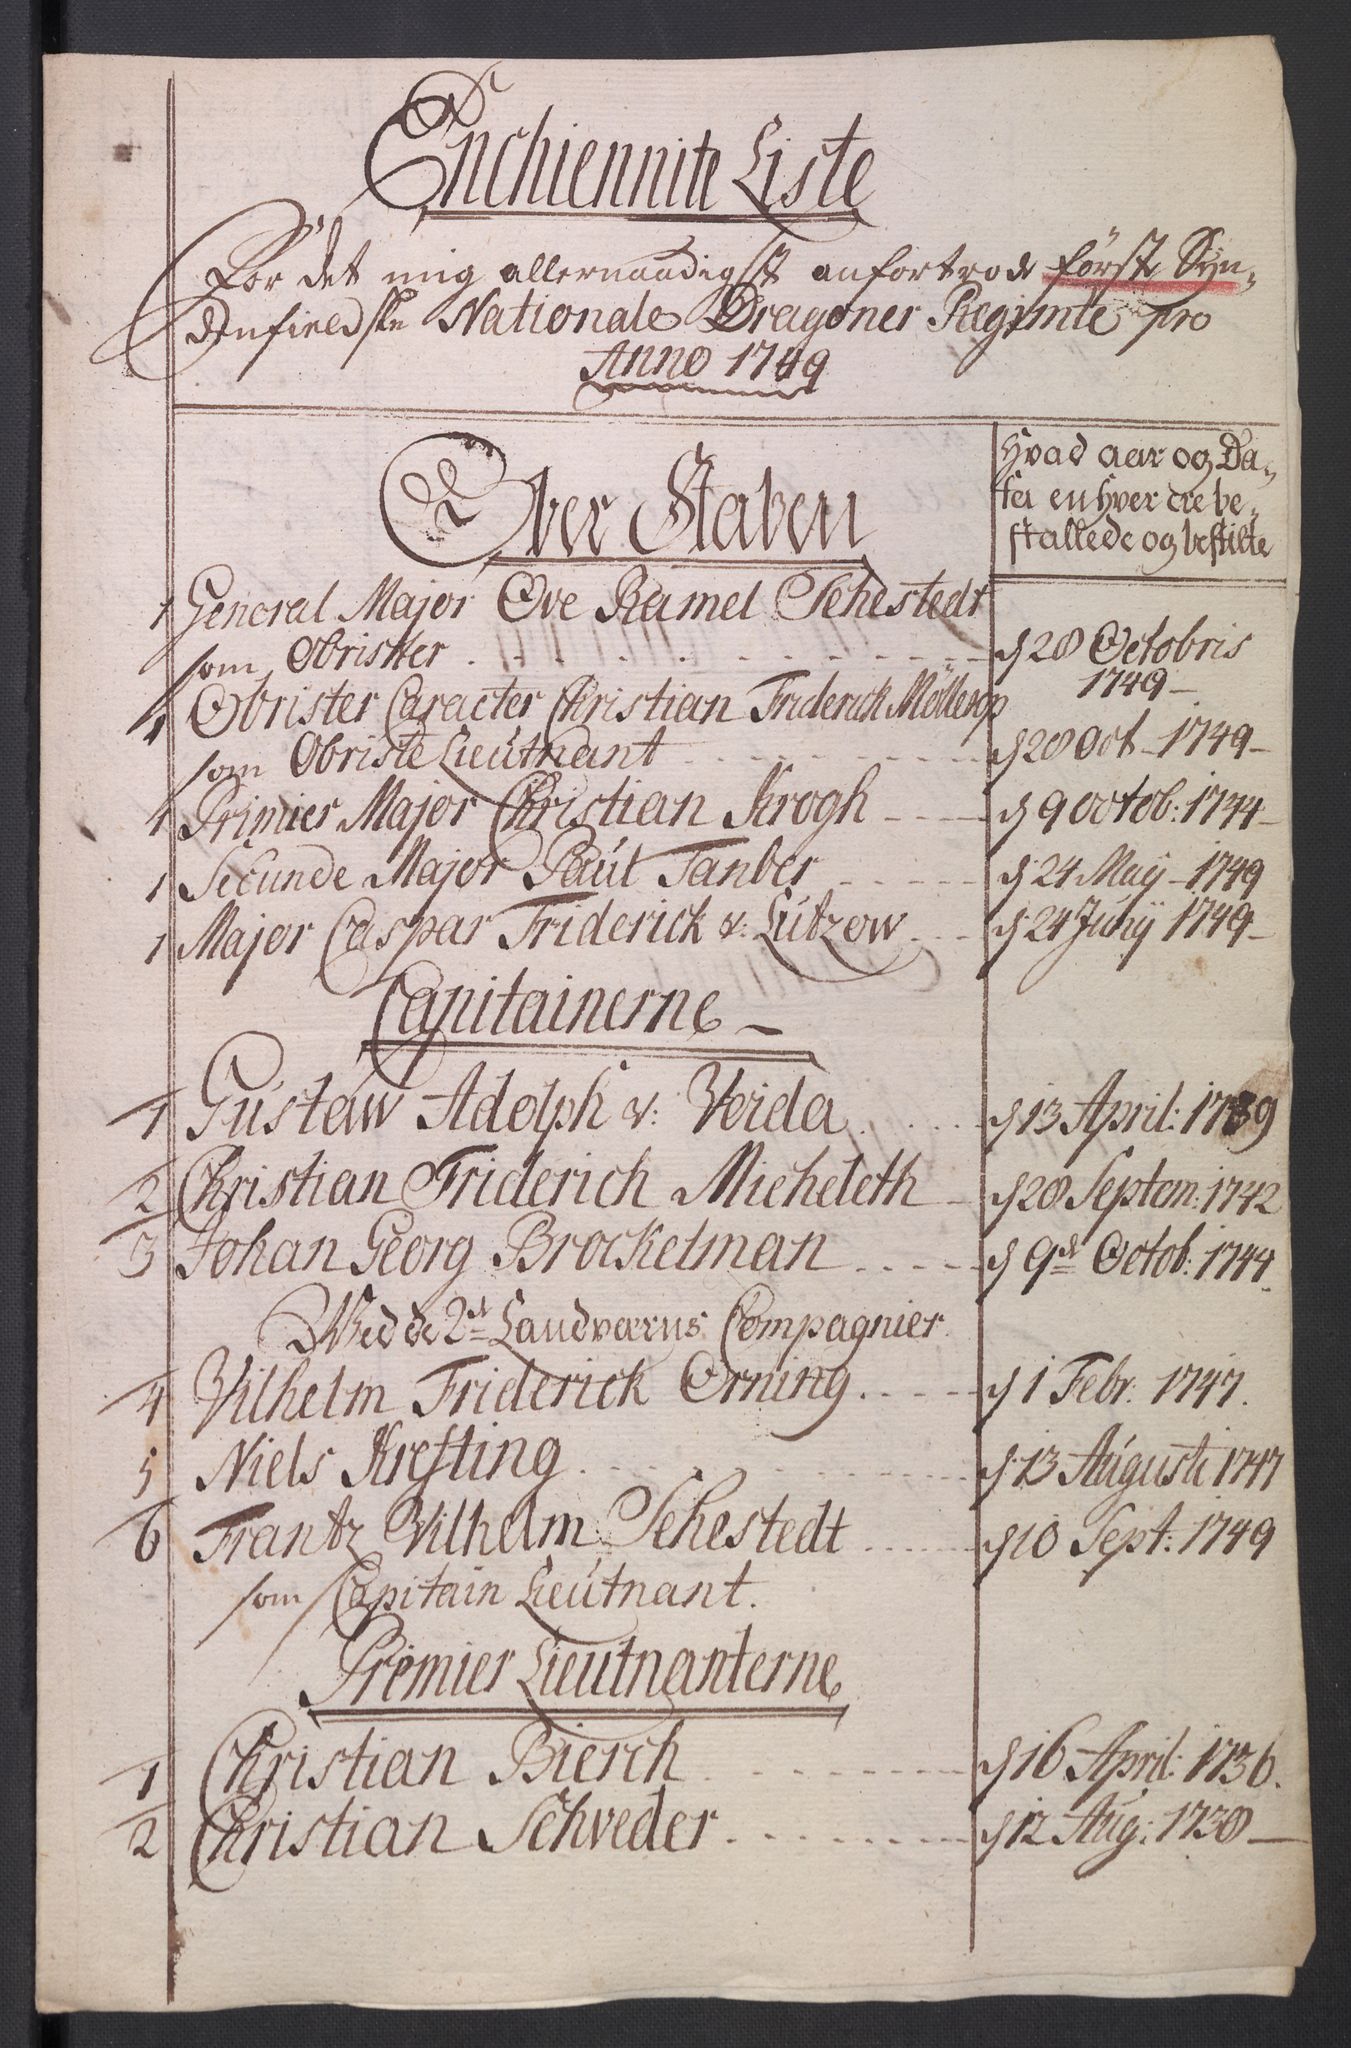 Enchiennite Liste
For det mig allernaadigst anfortrode förste Syn-
denfieldske Nationale Dragoner Regimte pro
Anno 1749
Ober Staben
Hvad aar og Da-
ter en hver ere be-
stallede og bestilte
1 General Major Ove Ramel Sehestedt
som Obrister d 28 Octobris
1749
1 Obrister Caracter Christian Friderich Möllerop
som Obriste Lieutnant d 28 Oct 1749
1 Primier Major Christian Krogh d 9 Octob: 1744
1 Secunde Major Paul Tanber d 24 Maij 1749
1 Major Caspar Friderick v: Lützow d 24 Junij 1749
Capitainerne
1 Gustaw Adolph v: Verida d 13 April: 1739
2 Christian Friderich Micheleth d 28 Septem: 1742
3 Johan Georg Brockelman d 9de Octob: 1744
Wed de 2de Landværns Compagnier
4 Vilhelm Friderick Orning d 1 Febr: 1747
5 Niels Krefting d 13 Augusti 1747
6 Frantz Vilhelm Sehestedt d 10 Sept: 1749
som Capitain Lieutnant.
Premier Lieutnanterne
1 Christian Bierch d 16 April: 1736
2 Christian Schveder d 12 Aug: 1738